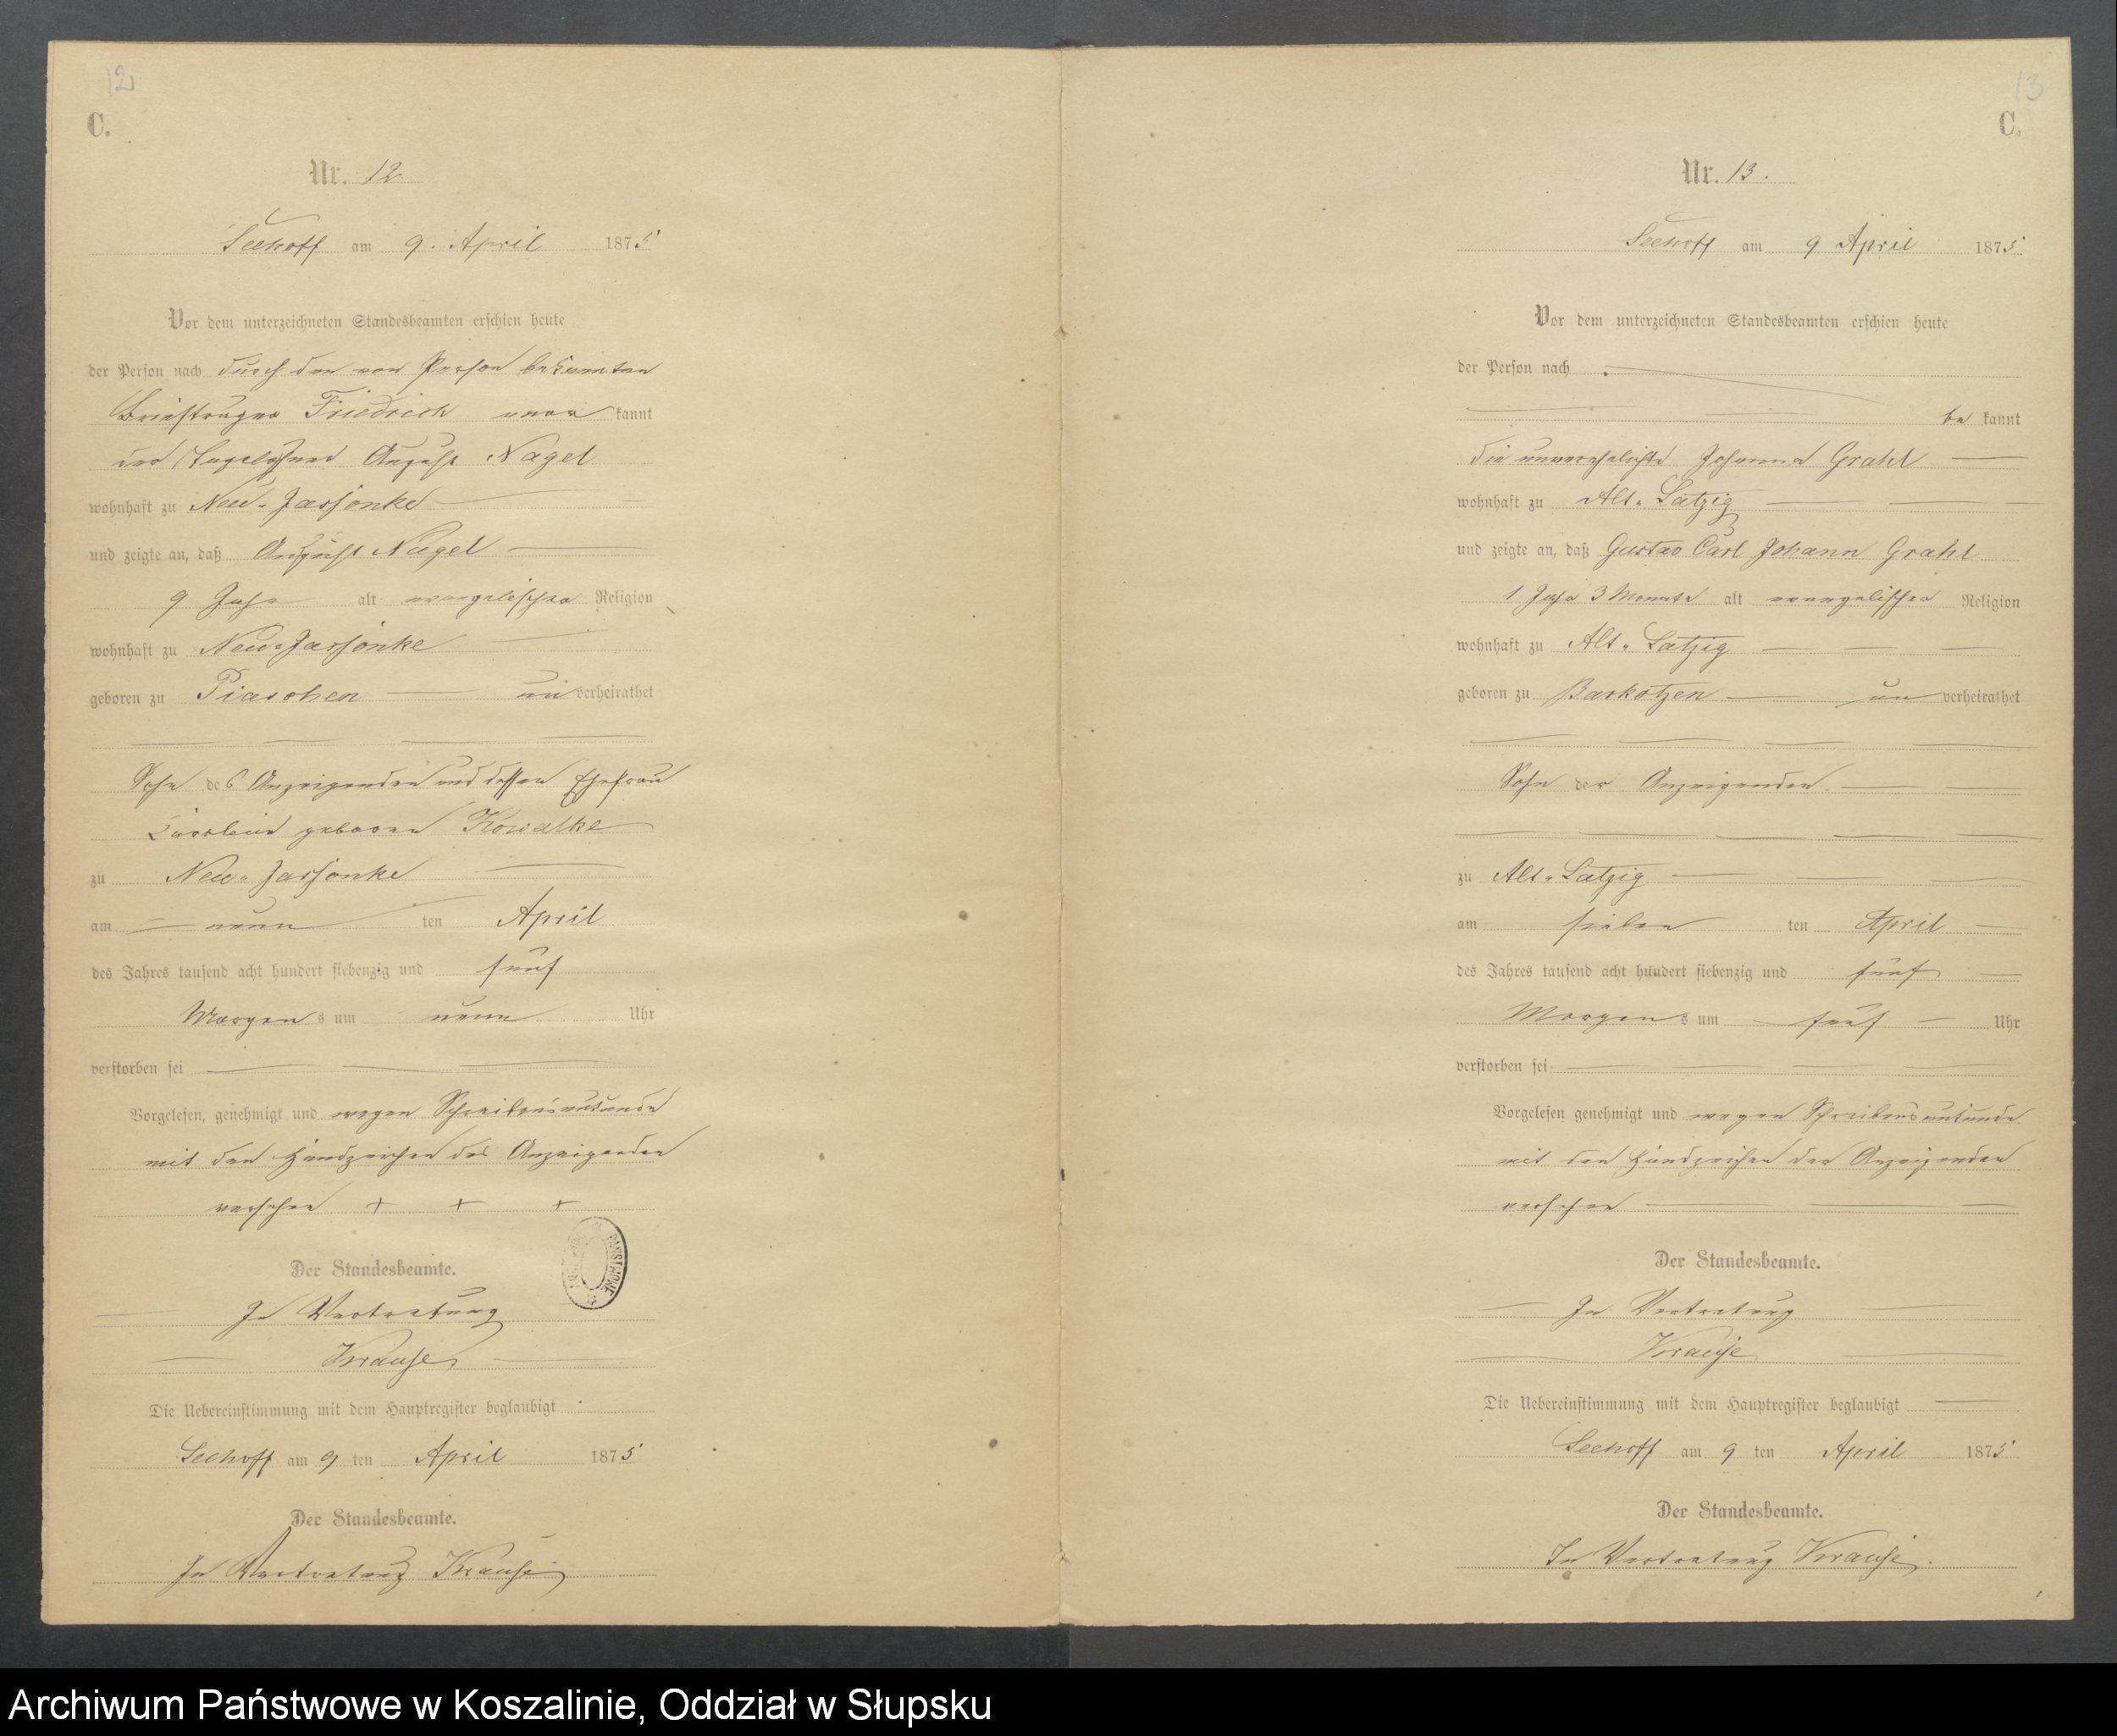 12
C.
Nr. 12
Seehoff am 9. April 1875
Vor dem unterzeichneten Standesbeamten erschien heute
der Person nach durch den von Person bekannten
Briefträger Friedrich aner kannt
der Tagelöhner August Nagel
wohnhaft zu Neu-Jassonke
und zeigte an, daß August Nagel
9 Jahr alt evangelischer Religion
wohnhaft zu Neu-Jassonke
geboren zu Piaschen un verheirathet
Sohn des Anzeigenden und dessen Ehefrau
geboren Kowalke
zu Neu-Jassonke
am neun ten April
des Jahres tausend acht hundert siebenzig und fünf
Morgen s um neun Uhr
verstorben sei
Vorgelesen, genehmigt und wegen Schreibensunkunde
mit den Handzeichen des Anzeigenden
versehen + + +
Der Standesbeamte.
In Vertretung
Krause
Die Uebereinstimmung mit dem Hauptregister beglaubigt
Seehoff am 9 ten April 1875
Der Standesbeamte.
In Vertretung Krause
13
C.
Nr. 13.
Seehoff am 9 April 1875
Vor dem unterzeichneten Standesbeamten erschien heute
der Person nach
be kannt
die unverehelichte Johanna Grahl
wohnhaft zu Alt-Latzig
und zeigte an, daß Gustav Carl Johann Grahl
1 Jahr 3 Monate alt evangelischer Religion
wohnhaft zu Alt-Latzig
geboren zu Barkotzen un verheirathet
Sohn der Anzeigenden
zu Alt-Latzig
am sieben ten April
des Jahres tausend acht hundert siebenzig und fünf
Morgen s um fünf Uhr
verstorben sei
Vorgelesen genehmigt und wegen Schreibensunkunde
mit den Handzeichen der Anzeigenden
versehen
Der Standesbeamte.
In Vertretung
Krause
Die Uebereinstimmung mit dem Hauptregister beglaubigt
Seehoff am 9 ten April 1875
Der Standesbeamte.
In Vertretung Krause.
Archiwum Państwowe w Koszalinie, Oddział w Słupsku